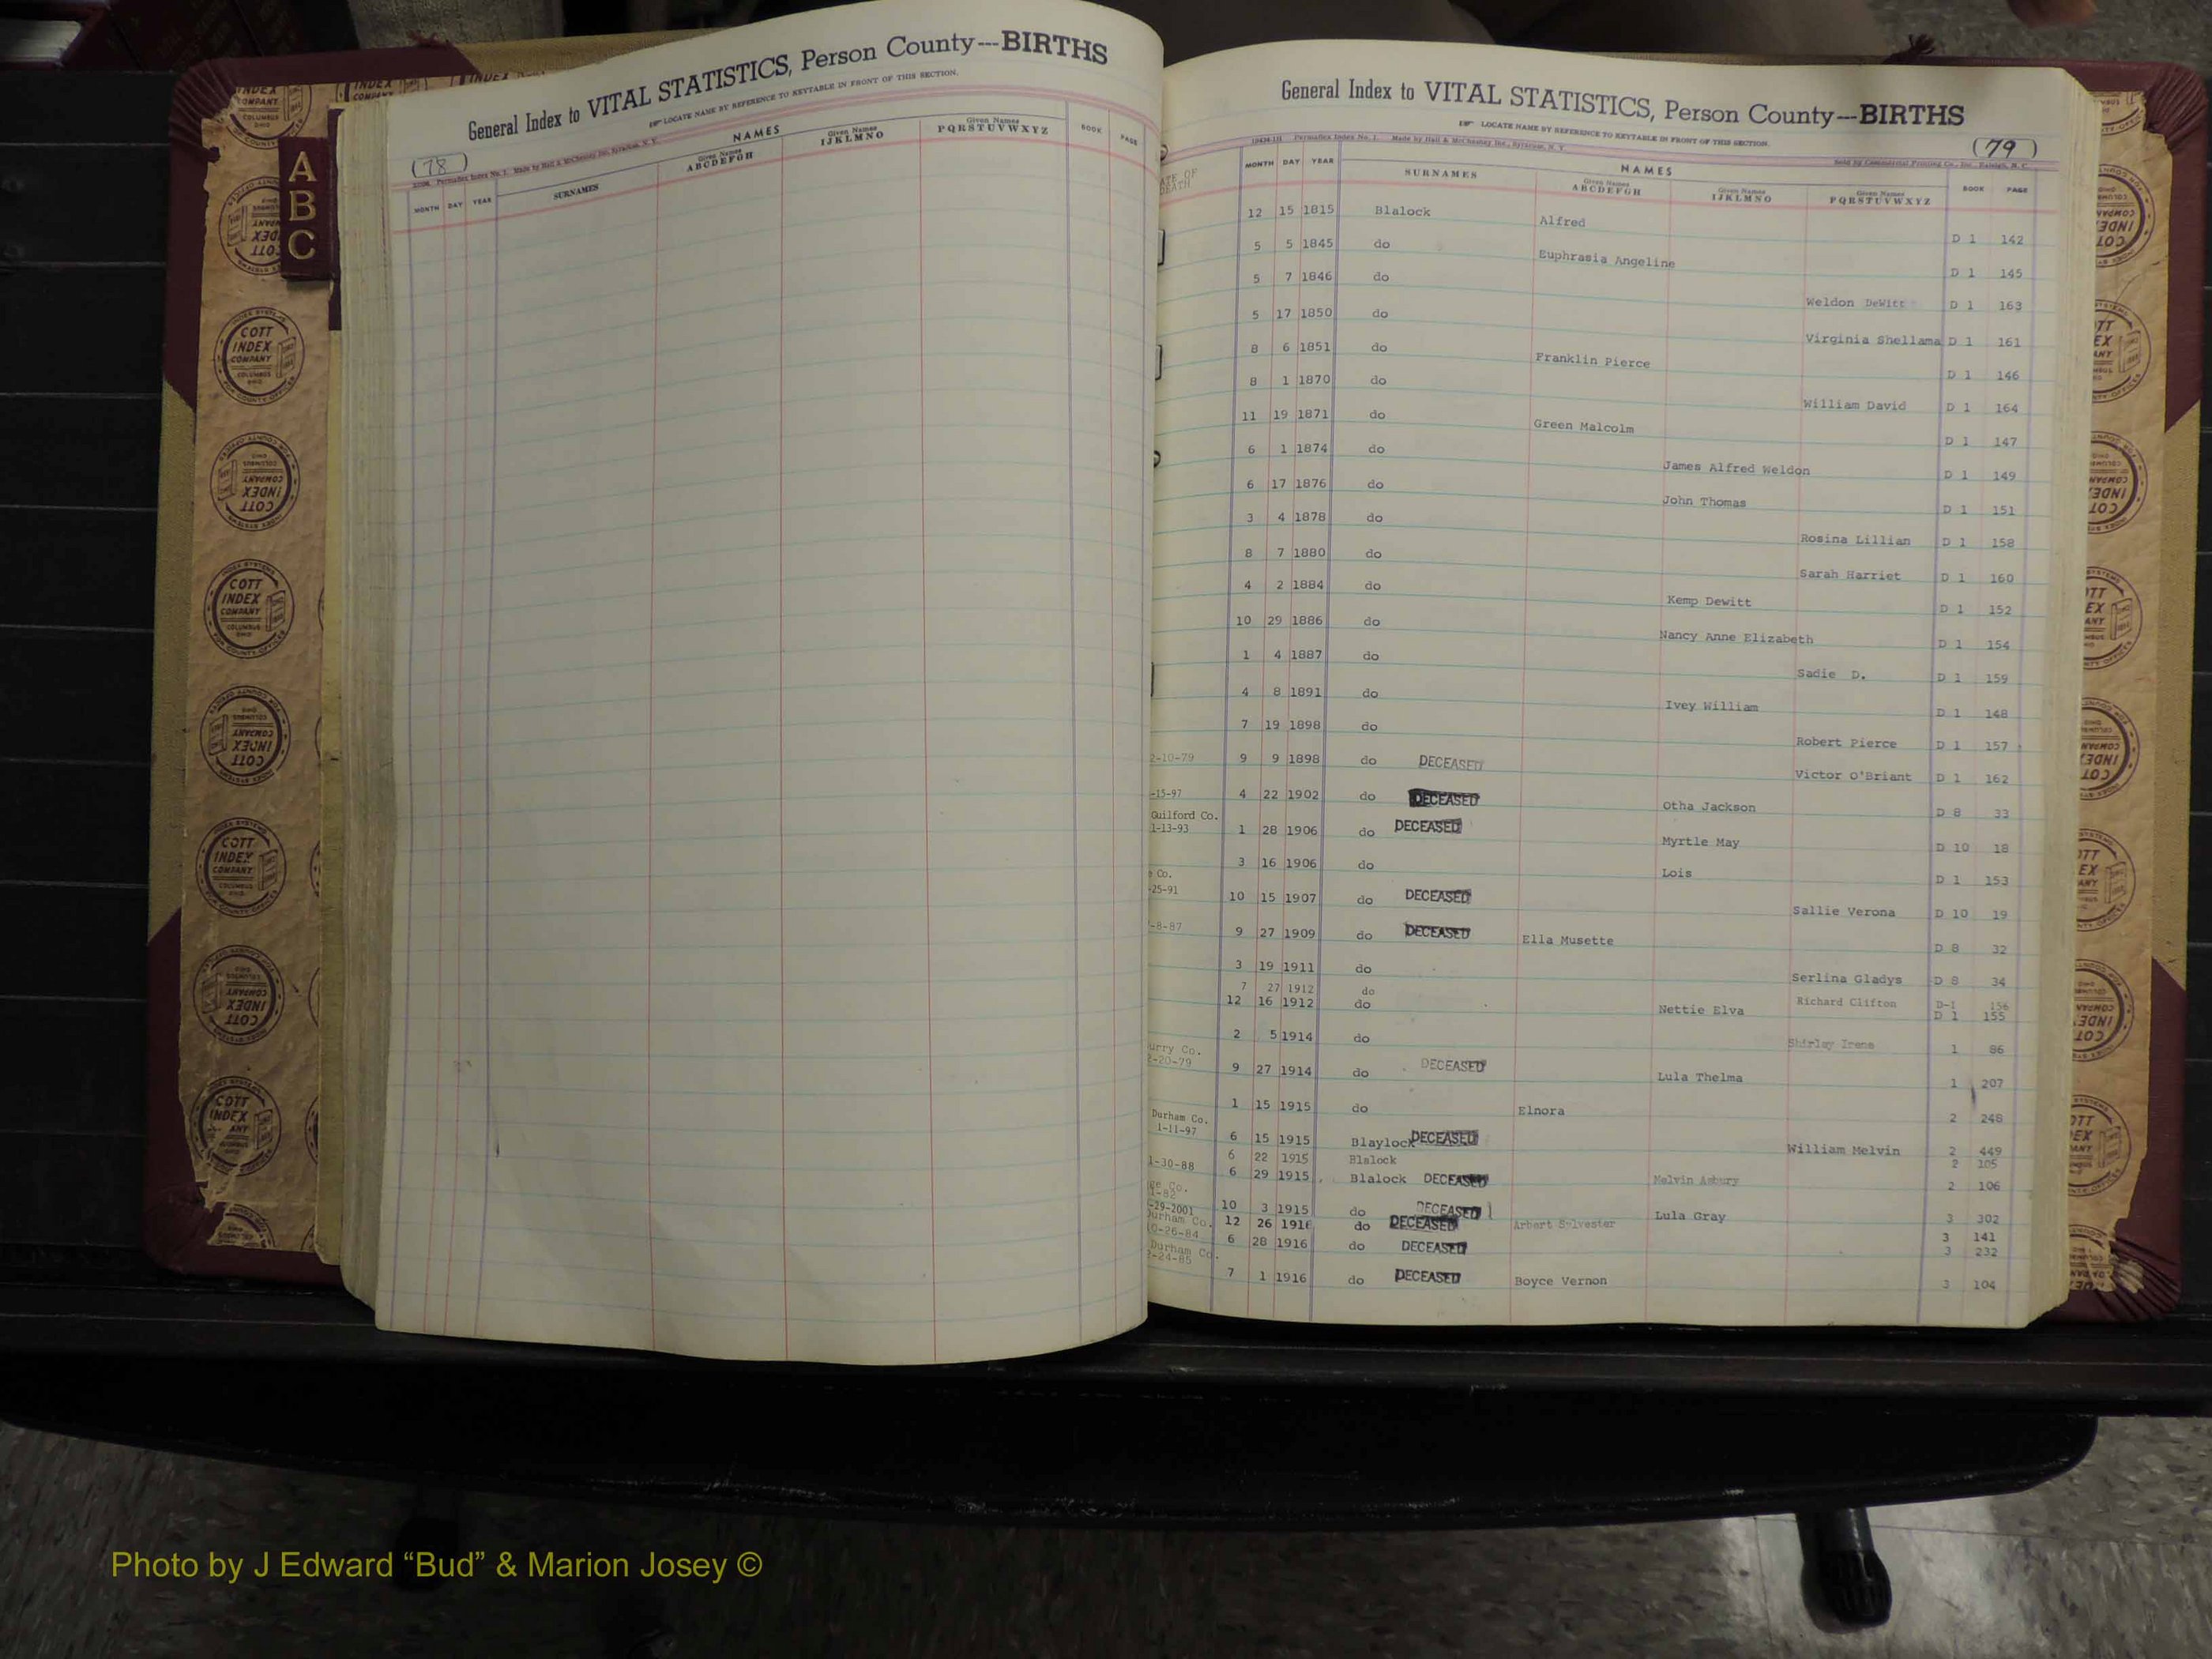 General Index to VITAL STATISTICS, Person County---BIRTHS
LOCATE NAME BY REFERENCE TO KEYTABLE IN FRONT OF THIS SECTION.
(78)
Permaflex Index No. 1. Made by Hall & McChesney Inc. Syracuse, N. Y.
NAMES
MONTH DAY YEAR SURNAMES Given Names ABCDEFGH Given Names IJKLMNO Given Names PQRSTUVWXYZ BOOK PAGE
A
B
C
COTT INDEX COMPANY COLUMBUS OHIO
General Index to VITAL STATISTICS, Person County---BIRTHS
LOCATE NAME BY REFERENCE TO KEYTABLE IN FRONT OF THIS SECTION.
(79)
Permaflex Index No. 1. Made by Hall & McChesney Inc., Syracuse, N. Y. Sold by Commercial Printing Co., Inc., Raleigh, N. C.
NAMES
DEATH MONTH DAY YEAR SURNAMES Given Names ABCDEFGH Given Names IJKLMNO Given Names PQRSTUVWXYZ BOOK PAGE
12 15 1815 Blalock Alfred D 1 142
5 5 1845 do Euphrasia Angeline D 1 145
5 7 1846 do Weldon DeWitt D 1 163
5 17 1850 do Virginia Shellama D 1 161
8 6 1851 do Franklin Pierce D 1 146
8 1 1870 do William David D 1 164
11 19 1871 do Green Malcolm D 1 147
6 1 1874 do James Alfred Weldon D 1 149
6 17 1876 do John Thomas D 1 151
3 4 1878 do Rosina Lillian D 1 158
8 7 1880 do Sarah Harriet D 1 160
4 2 1884 do Kemp Dewitt D 1 152
10 29 1886 do Nancy Anne Elizabeth D 1 154
1 4 1887 do Sadie D. D 1 159
4 8 1891 do Ivey William D 1 148
7 19 1898 do Robert Pierce D 1 157
2-10-79 9 9 1898 do DECEASED Victor O'Briant D 1 162
-15-97 4 22 1902 do DECEASED Otha Jackson D 8 33
Guilford Co.
1-13-93 1 28 1906 do DECEASED Myrtle May D 10 18
3 16 1906 do Lois D 1 153
Co.
-25-91 10 15 1907 do DECEASED Sallie Verona D 10 19
-8-87 9 27 1909 do DECEASED Ella Musette D 8 32
3 19 1911 do Serlina Gladys D 8 34
7 27 1912 do Richard Clifton D-1 156
12 16 1912 do Nettie Elva D 1 155
2 5 1914 do Shirley Irene 1 86
urry Co.
2-20-79 9 27 1914 do DECEASED Lula Thelma 1 207
1 15 1915 do Elnora 2 248
Durham Co.
1-11-97 6 15 1915 Blaylock DECEASED William Melvin 2 449
6 22 1915 Blalock 2 105
1-30-88 6 29 1915 Blalock DECEASED Melvin Asbury 2 106
ge Co.
1-82 10 3 1915 do DECEASED Lula Gray 3 302
-29-2001
Durham Co. 12 26 1916 do DECEASED Arbert Sylvester 3 141
0-26-84 6 28 1916 do DECEASED 3 232
Durham Co.
2-24-85 7 1 1916 do DECEASED Boyce Vernon 3 104
Photo by J Edward “Bud” & Marion Josey ©